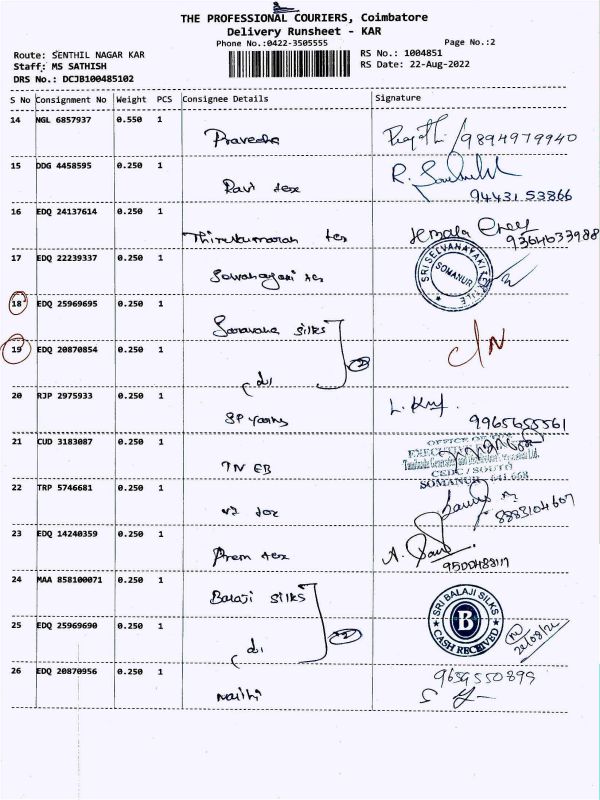 THE PROFESSIONAL COURIERS, Coimbatore
Delivery Runsheet - KAR
Phone No.:0422-3505555 Page No.:2
Route: SENTHIL NAGAR KAR RS No.: 1004851
Staff: MS SATHISH RS Date: 22-Aug-2022
DRS No.: DCJB100485102
S No Consignment No Weight PCS Consignee Details Signature
14 NGL 6857937 0.550 1
Praveena /9894979940
15 DDG 4458595 0.250 1 R.
Ravi tex 94431 53866
16 EDQ 24137614 0.250 1
Thirukumaran tex 9364633988
17 EDQ 22239337 0.250 1 SRI SELVANAYAKI
tex SOMANUR
18 EDQ 25969695 0.250 1
Saravana silks
19 EDQ 20870854 0.250 1
2
20 RJP 2975933 0.250 1 L.
SP yarns 9965655561
21 CUD 3183087 0.250 1 OFFICE OF THE
TN EB CEDC / SOUTH
SOMANUR - 641 668
22 TRP 5746681 0.250 1
VJ tex 8883104607
23 EDQ 14240359 0.250 1 A.
Prem tex
24 MAA 858100071 0.250 1
Balaji silks SRI BALAJI SILKS
25 EDQ 25969690 0.250 1 B
CASH RECEIVED
26 EDQ 20870956 0.250 1 9659550899